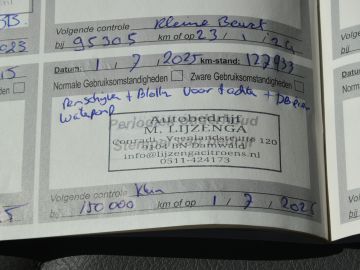 Volgende controle Kleine Beurt
bij 95305 km of op 23 / 1 / 24
Datum: 1 / 7 / 2025 km-stand: 127933
Normale Gebruiksomstandigheden Zware Gebruiksomstandigheden
Remschijven + Blokken voor + achter +
waterpomp
Autobedrijf
M. LIJZENGA
Conradi - Veenlandsteurte 120
9104 BN Damwald
info@lijzengacitroens.nl
0511-424173
Volgende controle Klein
bij 150000 km of op 1 / 7 / 2026